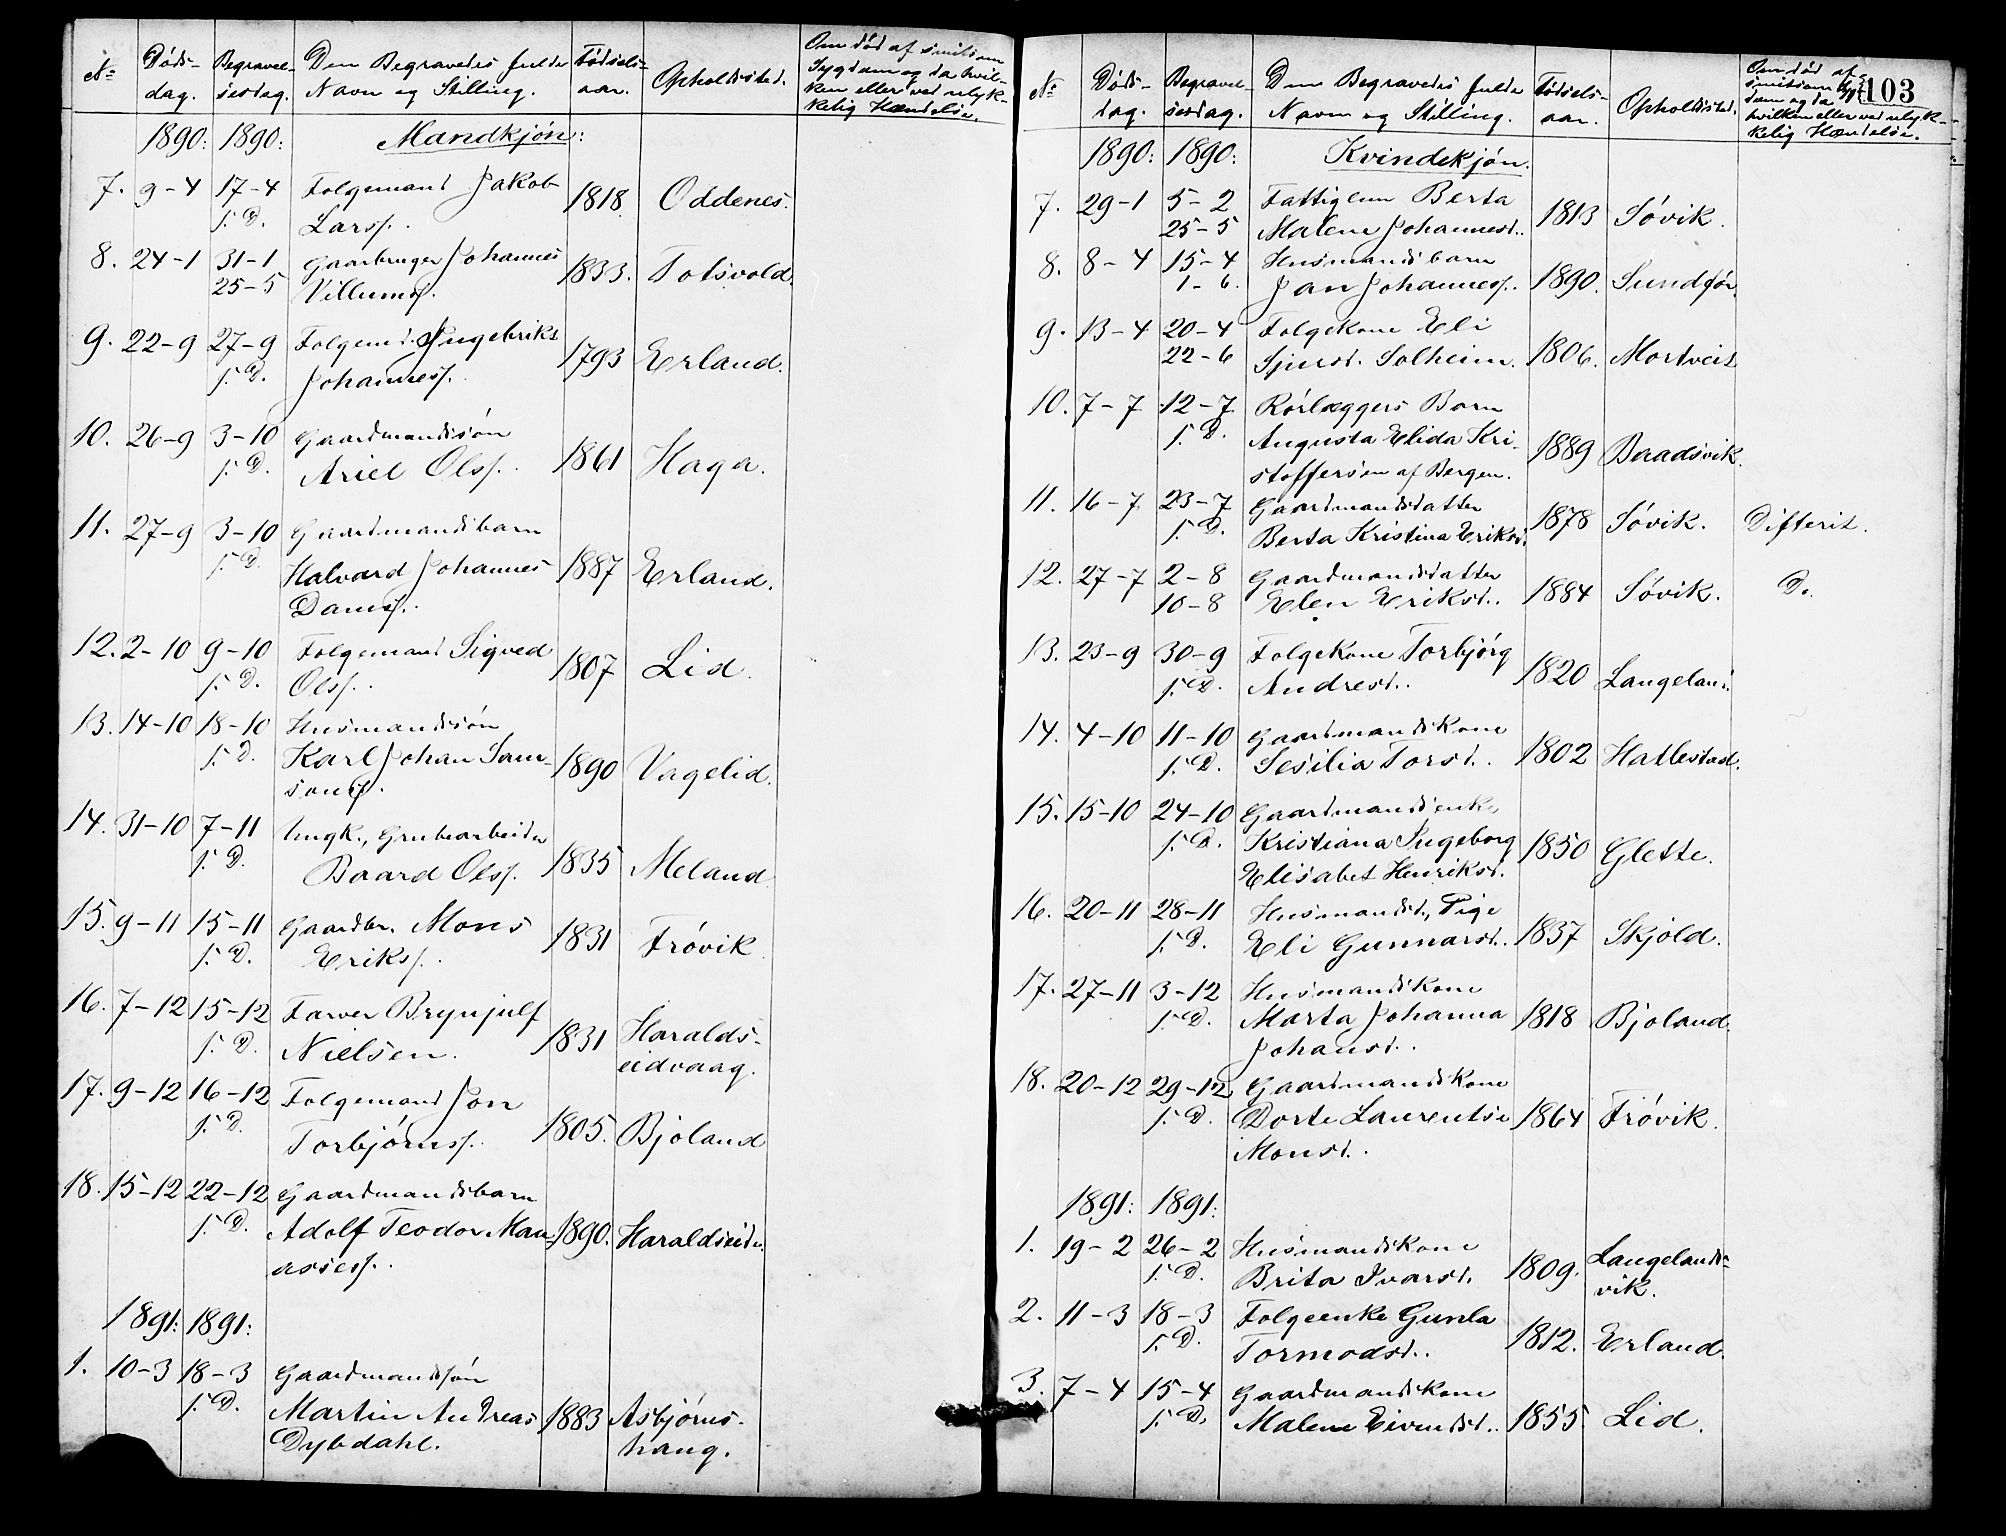 No Døds-dag. Begravel-sesdag. Den Begravedes fulde Navn og Stilling. Fødsels-aar. Opholdssted. Om død af smitsom Sygdom og da hvil-ken eller ved ulyk-kelig Hændelse.
1890: 1890: Mandkjøn:
7. 9-4 17-4 Folgemand Jakob
s. D. Larss. 1818 Oddenes.
8. 24-1 31-1 Gaardbruger Johannes
25-5 Villumss. 1833. Totsvold.
9. 22-9 27-9 Folgemd. Ingebrikt
s. D. Johanness. 1793 Erland.
10. 26-9 3-10 Gaardmandssøn
s. D. Ariel Olss. 1861 Haga.
11. 27-9 3-10 Gaardmandsbarn
s. D. Halvard Johannes 1887 Erland.
Danss.
12. 2-10 9-10 Folgemand Sigved
s. D. Olss. 1807 Lid.
13. 14-10 18-10 Husmandssøn
s. D. Karl Johan Sam- 1890 Vagelid.
sons.
14. 31-10 7-11 Ungk., Grubearbeider
s. D. Baard Olss. 1835 Meland
15. 9-11 15-11 Gaardbr. Mons
s. D. Erikss. 1831 Frøvik.
16. 7-12 15-12 Farver Brynjulf
s. D. Nielsen. 1831 Haralds-
eidvaag.
17. 9-12 16-12 Folgemand Jon
s. D. Torbjørnss. 1805. Bjoland
18. 15-12 22-12 Gaardmandsbarn
s. D. Adolf Teodor Man- 1890. Haraldseide.
assess.
1891: 1891:
1. 10-3 18-3 Gaardmandssøn
s. D. Martin Andreas 1883 Asbjørns-
Dybdahl. haug.
103
No Døds-dag. Begravel-sesdag. Den Begravedes fulde Navn og Stilling. Fødsels-aar. Opholdssted. Om død af smitsom Syg-dom og da hvilken eller ved ulyk-kelig Hændelse.
1890: 1890: Kvindekjøn.
7. 29-1 5-2 Fattiglem Berta
25-5 Malene Johannesd. 1813 Søvik.
8. 8-4 15-4 Husmandsbarn
1-6. Jan Johanness. 1890. Sundfør.
9. 13-4 20-4 Folgekone Eli
22-6 Sjursd. Solheim. 1806. Mortveit
10. 7-7 12-7 Rørlæggers Barn
s. D. Augusta Elida Kri- 1889 Baadsvik.
stoffersen af Bergen.
11. 16-7 23-7 Gaardmandsdatter
s. D. Berta Kristina Eriksd. 1878 Søvik. Difterit.
12. 27-7 2-8 Gaardmandsdatter
10-8 Elen Eriksd. 1884 Søvik. Do.
13. 23-9 30-9 Folgekone Torbjørg
s. D. Andresd. 1820 Langeland.
14. 4-10 11-10 Gaardmandskone
s. D. Sesilia Torsd. 1802 Hatlestad.
15. 15-10 24-10 Gaardmandsenke
s. D. Kristiana Ingeborg 1850 Glette.
Elisabet Henriksd.
16. 20-11 28-11 Husmandsd., Pige
s. D. Eli Gunnarsd. 1837 Skjold.
17. 27-11 3-12 Husmandskone
s. D. Marta Johanna 1818 Bjoland.
Johansd.
18. 20-12 29-12 Gaardmandskone
s. D. Dorte Laurentse 1864 Frøvik.
Monsd.
1891: 1891:
1. 19-2 26-2 Husmandskone
s. D. Brita Ivarsd. 1809. Langelands-
vik.
2. 11-3 18-3 Folgeenke Gunla
s. D. Tormodsd. 1812. Erland.
3. 7-4 15-4 Gaardmandskone
s. D. Malene Eivindsd. 1855. Lid.